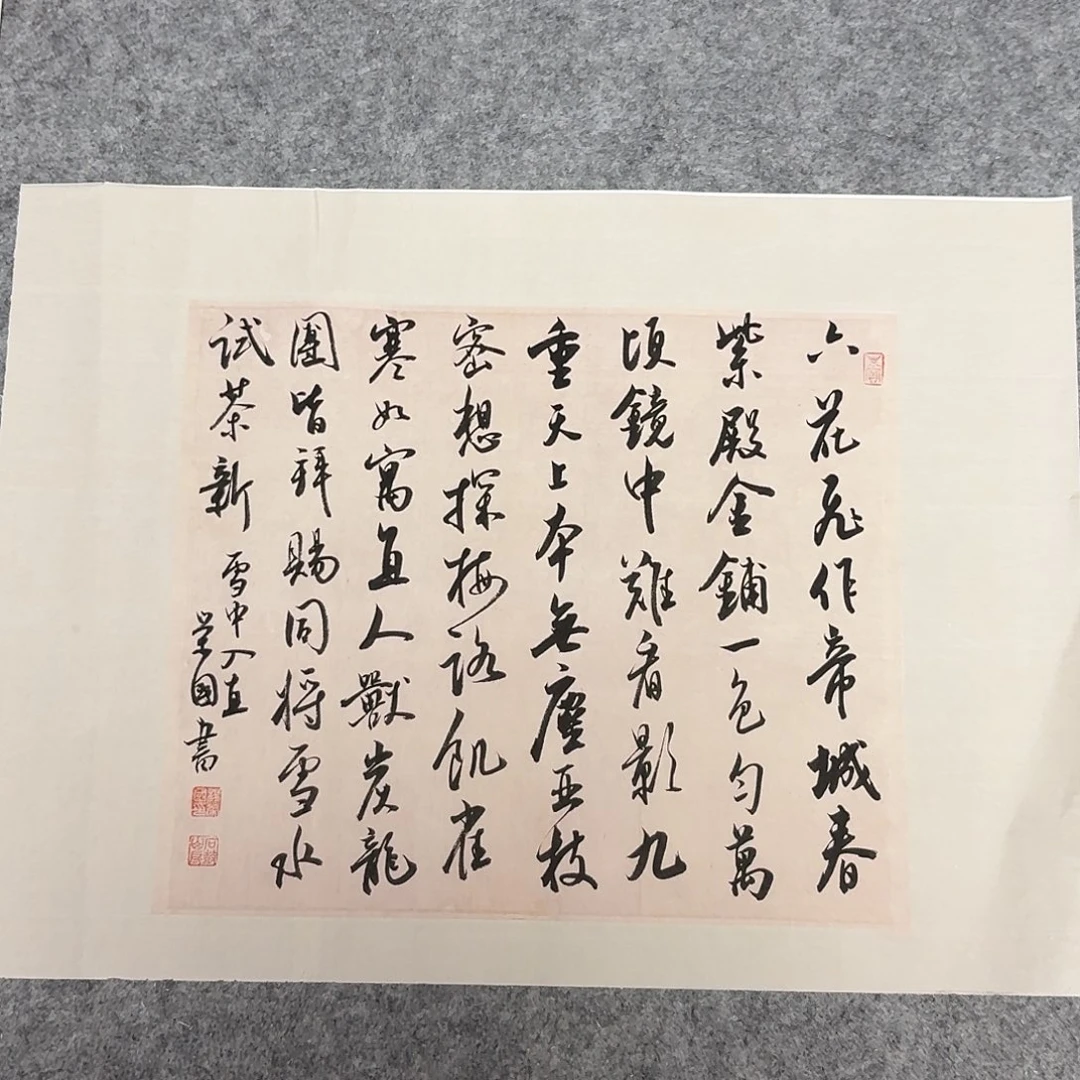 六花飛作帝城春
紫殿金鋪一色勻萬
頃鏡中難看影九
重天上本無塵亞枝
密想探梅路飢雀
寒如寓直人獸炭龍
團皆拜賜同將雪水
試茶新
雪中入直
國書